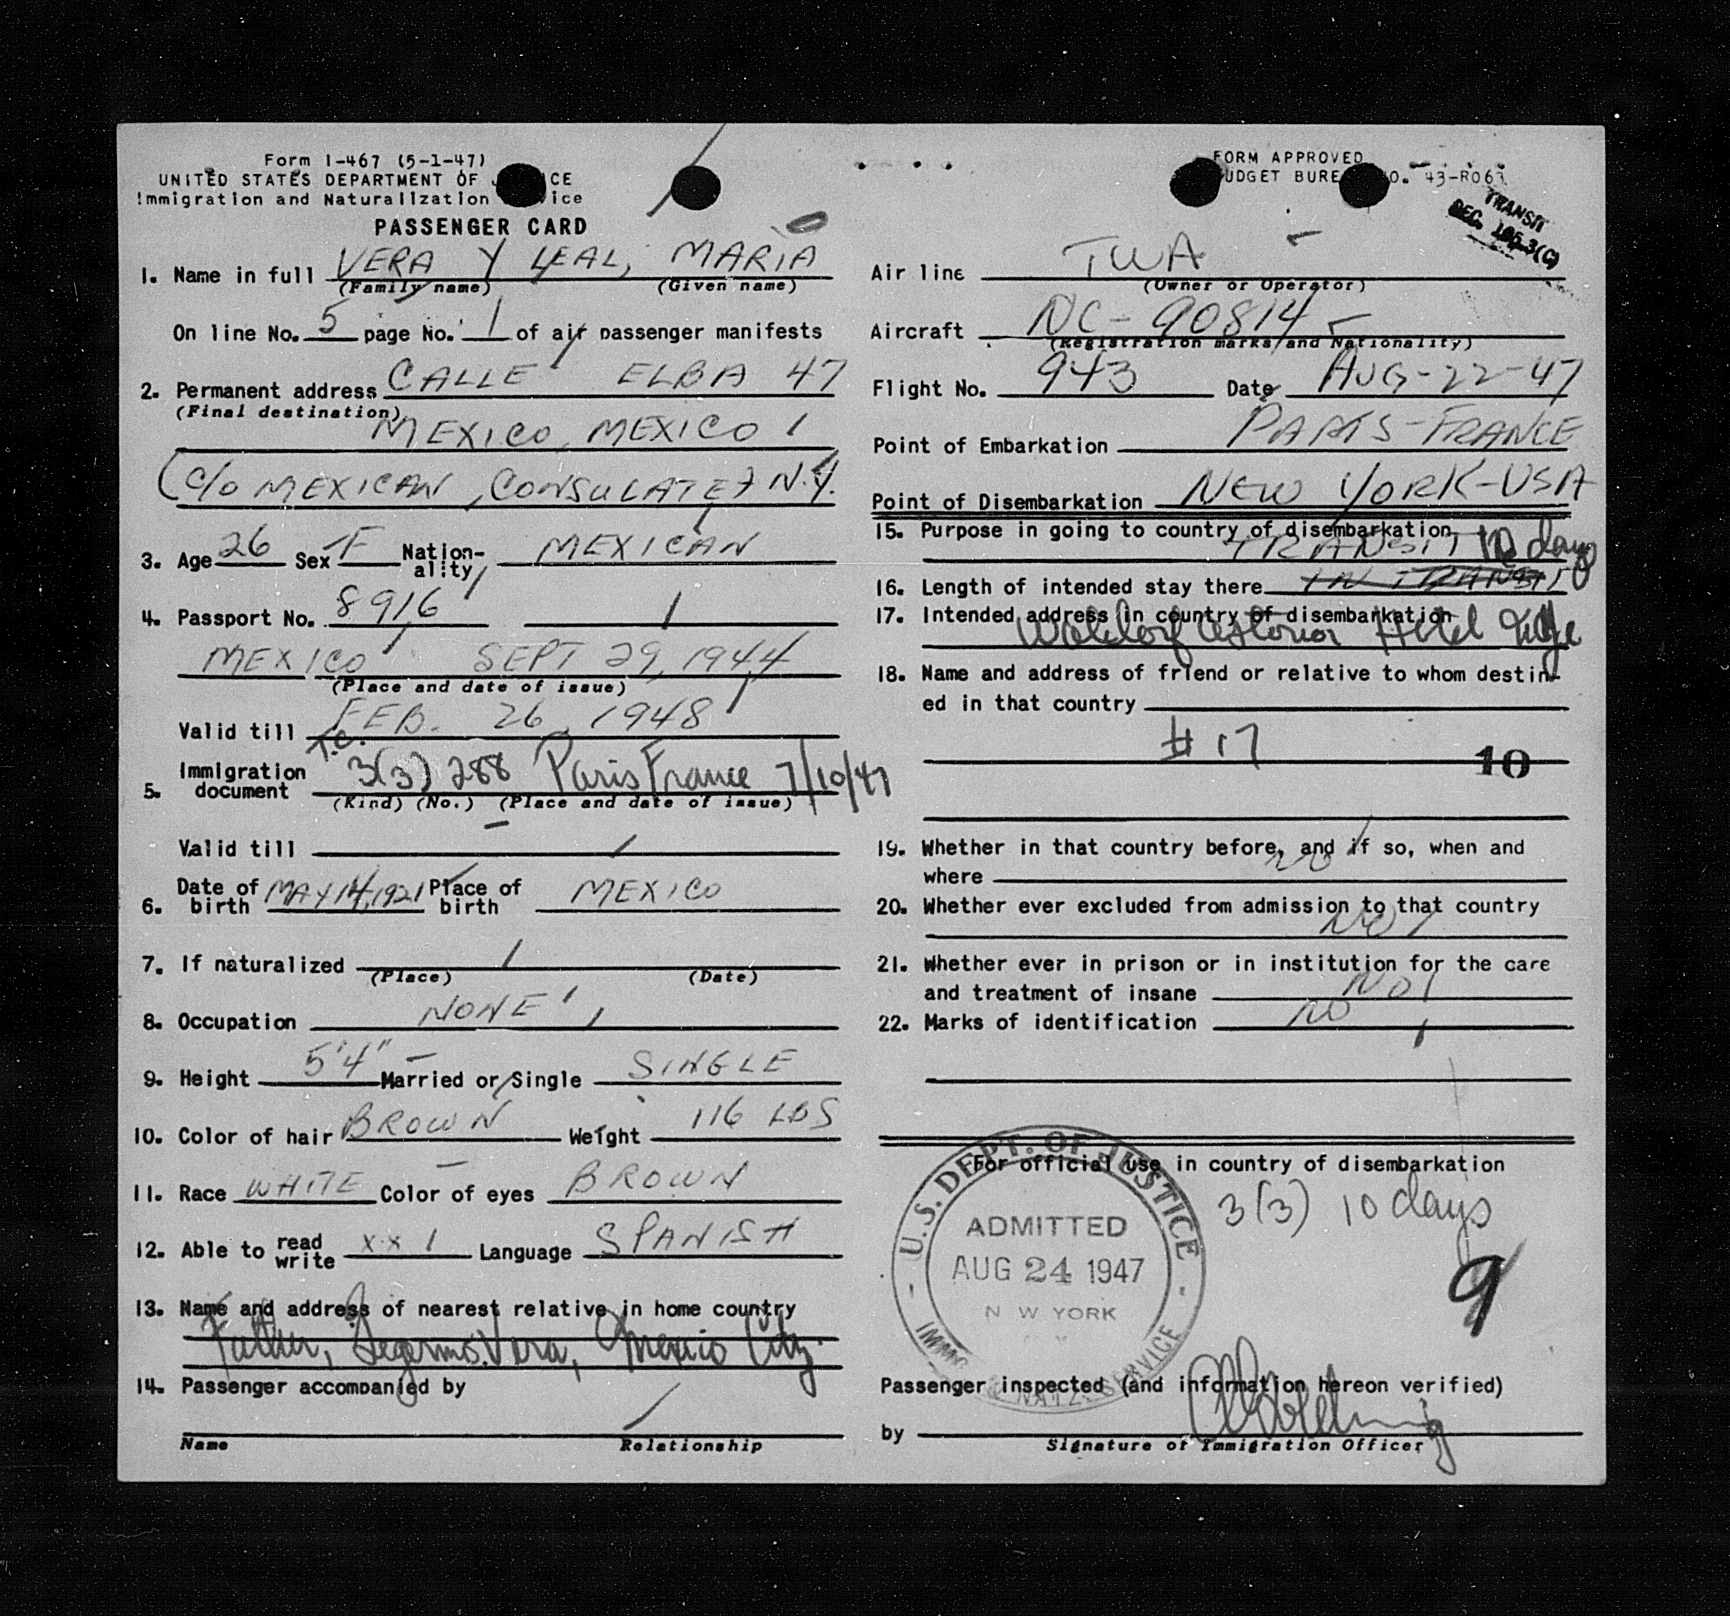 Form I-467 (5-1-47)
UNITED STATES DEPARTMENT OF
Immigration and Naturalization
PASSENGER CARD
1. Name in full VERA Y LEAL, MARIA
(Family name) (Given name)
On line No. 5 page No. 1 of air passenger manifests
2. Permanent address CALLE ELBA 47
(Final destination)
MEXICO, MEXICO
(C/O MEXICAN, CONSULATE) N.Y.
3. Age 26 Sex F Nation-ality MEXICAN
4. Passport No. 8916
MEXICO SEPT 29, 1944
(Place and date of issue)
Valid till FEB. 26, 1948
T.C.
5. Immigration document 3(3) 288 Paris France 7/10/47
(Kind) (No.) (Place and date of issue)
Valid till
6. Date of birth MAY 14, 1921 Place of birth MEXICO
7. If naturalized
(Place) (Date)
8. Occupation NONE
9. Height 5'4" Married or Single SINGLE
10. Color of hair BROWN Weight 116 LBS
11. Race WHITE Color of eyes BROWN
12. Able to read write x x Language SPANISH
13. Name and address of nearest relative in home country
Father, Vera, Mexico City.
14. Passenger accompanied by
Name Relationship
FORM APPROVED
43-R063
TRANSIT
Air line TWA
(Owner or Operator)
Aircraft NC-90814
(Registration marks and Nationality)
Flight No. 943 Date AUG-22-47
Point of Embarkation PARIS-FRANCE
Point of Disembarkation NEW YORK-USA
15. Purpose in going to country of disembarkation
TRANSIT 10 days
16. Length of intended stay there IN TRANSIT
17. Intended address in country of disembarkation
Waldorf Astoria Hotel
18. Name and address of friend or relative to whom destin-
ed in that country
# 17 10
19. Whether in that country before, and if so, when and
where no
20. Whether ever excluded from admission to that country
NO
21. Whether ever in prison or in institution for the care
and treatment of insane NO
22. Marks of identification NO
For official use in country of disembarkation
3(3) 10 days
9
U.S. DEPT. OF JUSTICE
ADMITTED
AUG 24 1947
N W YORK
SERVICE
Passenger inspected (and information hereon verified)
by
Signature of Immigration Officer